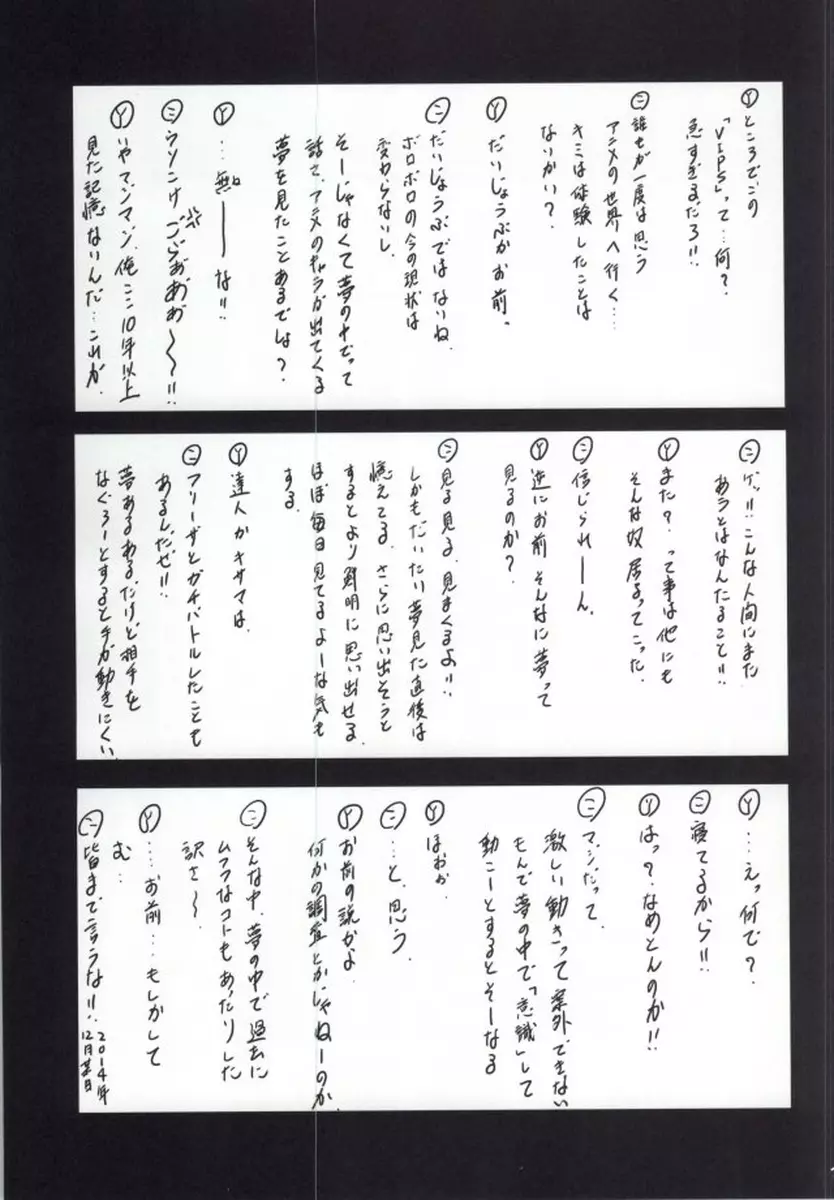 Ⓨところでこの
「VIPS」って…何?
怠すぎるだろ!!
㊁誰もが一度は思う
アニメの世界へ行く…
キミは体験したことは
ないかい?
Ⓨだいじょうぶかお前。
㊁だいじょうぶではないね。
ボロボロの今の現状は
変わらないし。
そーじゃなくて夢の中でって
話さ、アニメのキャラが出てくる
夢を見たことあるでしょ?
Ⓨ…無ーな!!
㊁ウソこけ ごらぁあぁ〜〜!!
Ⓨいやマンマン、俺ここ10年以上
見た記憶ないんだ…これが。
㊁ゲッ!!こんな人間にまた
あうとはなんたること!!
Ⓨまた?って事は他にも
そんな奴居るってこった。
㊁信じられーん。
Ⓨ逆にお前そんなに夢って
見るのか?
㊁見る見る、見まくるよ!!
しかもだいたい夢見た直後は
憶えてる。さらに思い出そうと
するとより鮮明に思い出せる。
ほぼ毎日見てるよーな気も
する。
Ⓨ達人かキサマは。
㊁フリーザとガチバトルしたことも
あるんだぜ!!
夢あるあるだけど相手を
なぐろーとすると手が動きにくい。
Ⓨ…えっ何で?
㊁寝てるから!!
Ⓨはっ?なめとんのか!!
㊁マジだって。
激しい動きって案外、できない
もんで夢の中で「意識」して
動こーとするとそーなる
Ⓨほぉぉ
㊁…と、思う。
Ⓨお前の説かよ
何かの調査とかじゃねーのか。
㊁そんな中、夢の中で過去に
ムフフなコトもあったりした
訳さ〜。
Ⓨ……お前…もしかして
む…
㊁皆まで言うな!!
2014年
12月某日